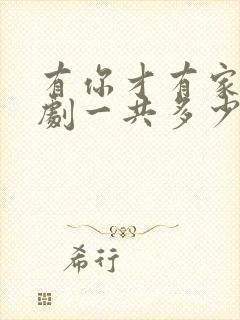 有你才有家
劇一共多少
希行